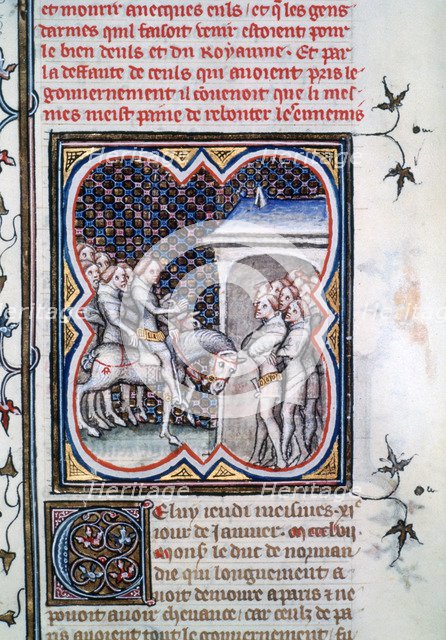 et mourir avecques euls / et q̃ les gens
darmes quil faisoit venir estoient pour
le bien deuls et du Royaume · Et par
la deffaute de ceuls qui avoient pris le
gouvernement il covenoit que li mes
mes meist paine de rebouter le ennemis
Celuy ieudi meismes · xi ·
iour de Janvier · mccclvij
mons̃ le duc de norman
die qui longuement a
voit demoure a paris & ne
pouoit avoir chevance / car ceulz de pa
ris avoient tout le gouvernement / fu